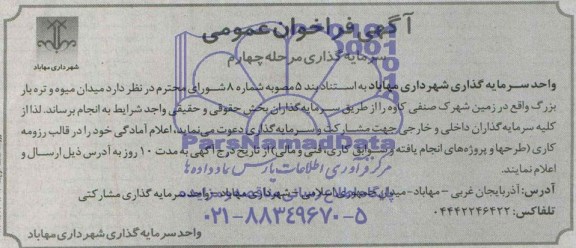 آگهی فراخوان عمومی
سرمایه گذاری مرحله چهارم
شهرداری مهاباد
واحد سرمایه گذاری شهرداری مهاباد به استناد بند ۵ مصوبه شماره ۸ شورای محترم در نظر دارد میدان میوه و تره بار
بزرگ واقع در زمین شهرک صنفی کاوه را از طریق سرمایه گذاران بخش حقوقی و حقیقی واجد شرایط به انجام برساند. لذا از
کلیه سرمایه گذاران داخلی و خارجی جهت مشارکت و سرمایه گذاری دعوت می نماید، اعلام آمادگی خود را در قالب رزومه
کاری (طرحها و پروژه های انجام یافته و سوابق کاری، فنی و مالی) از تاریخ درج آگهی به مدت ۱۰ روز به آدرس ذیل ارسال و
اعلام نمایند.
آدرس: آذربایجان غربی - مهاباد - میدان - شهرداری مهاباد - واحد سرمایه گذاری مشارکتی
تلفاکس: ۰۴۴۴۲۲۴۶۴۲۲
واحد سرمایه گذاری شهرداری مهاباد
ParsNamadData
مرکز فرآوری اطلاعات پارس نماد داده ها
۰۲۱-۸۸۳۴۹۶۷۰-۵